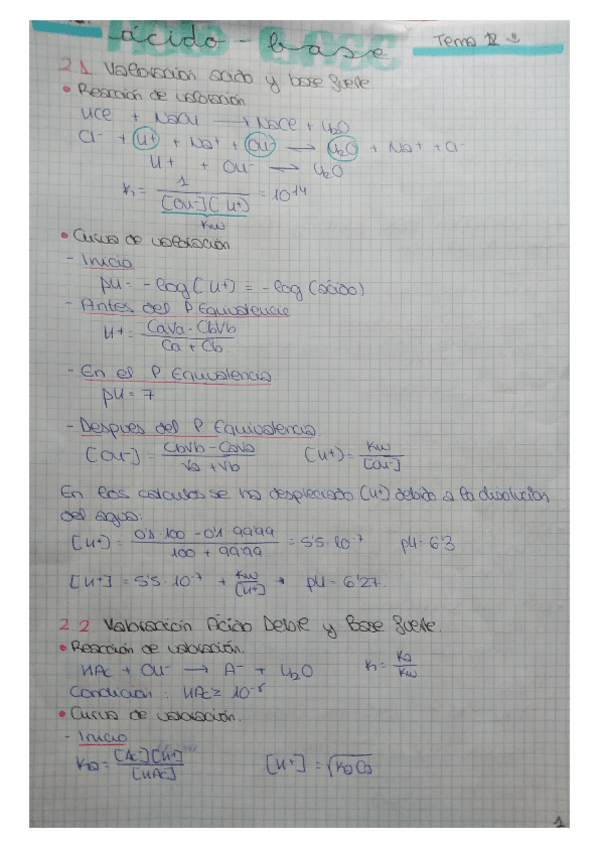 ácido - base
Tema 12
2.1. Valoración ácido y base fuerte.
• Reacción de valoración
HCl + NaOH → NaCl + H2O
Cl- + H+ + Na+ + OH- → H2O + Na+ + Cl-
H+ + OH- → H2O
K1 = 1 / [OH-][H+] = 10^14
Kw
• Curvas de valoración
- Inicio
pH = -log [H+] = -log (ácido)
- Antes del P Equivalencia
H+ = CaVa - CbVb / Ca + Cb
- En el P Equivalencia
pH = 7
- Despues del P Equivalencia
[OH-] = CbVb - CaVa / Va + Vb [H+] = Kw / [OH-]
En los calculos se ha despreciado [H+] debido a la disolución
del agua:
[H+] = 0'1 · 100 - 0'1 · 99'99 / 100 + 99'99 = 5'5 · 10^-7 pH = 6'3
[H+] = 5'5 · 10^-7 + Kw / [H+] pH = 6'27.
2.2. Valoración Ácido Debil y Base fuerte.
• Reacción de valoración.
HAc + OH- → A- + H2O K1 = Ka / Kw
Condición : HAc ≥
• Curvas de valoración.
- Inicio
Ka = [Ac-][H+] / [HAc] [H+] = √KaCa
1